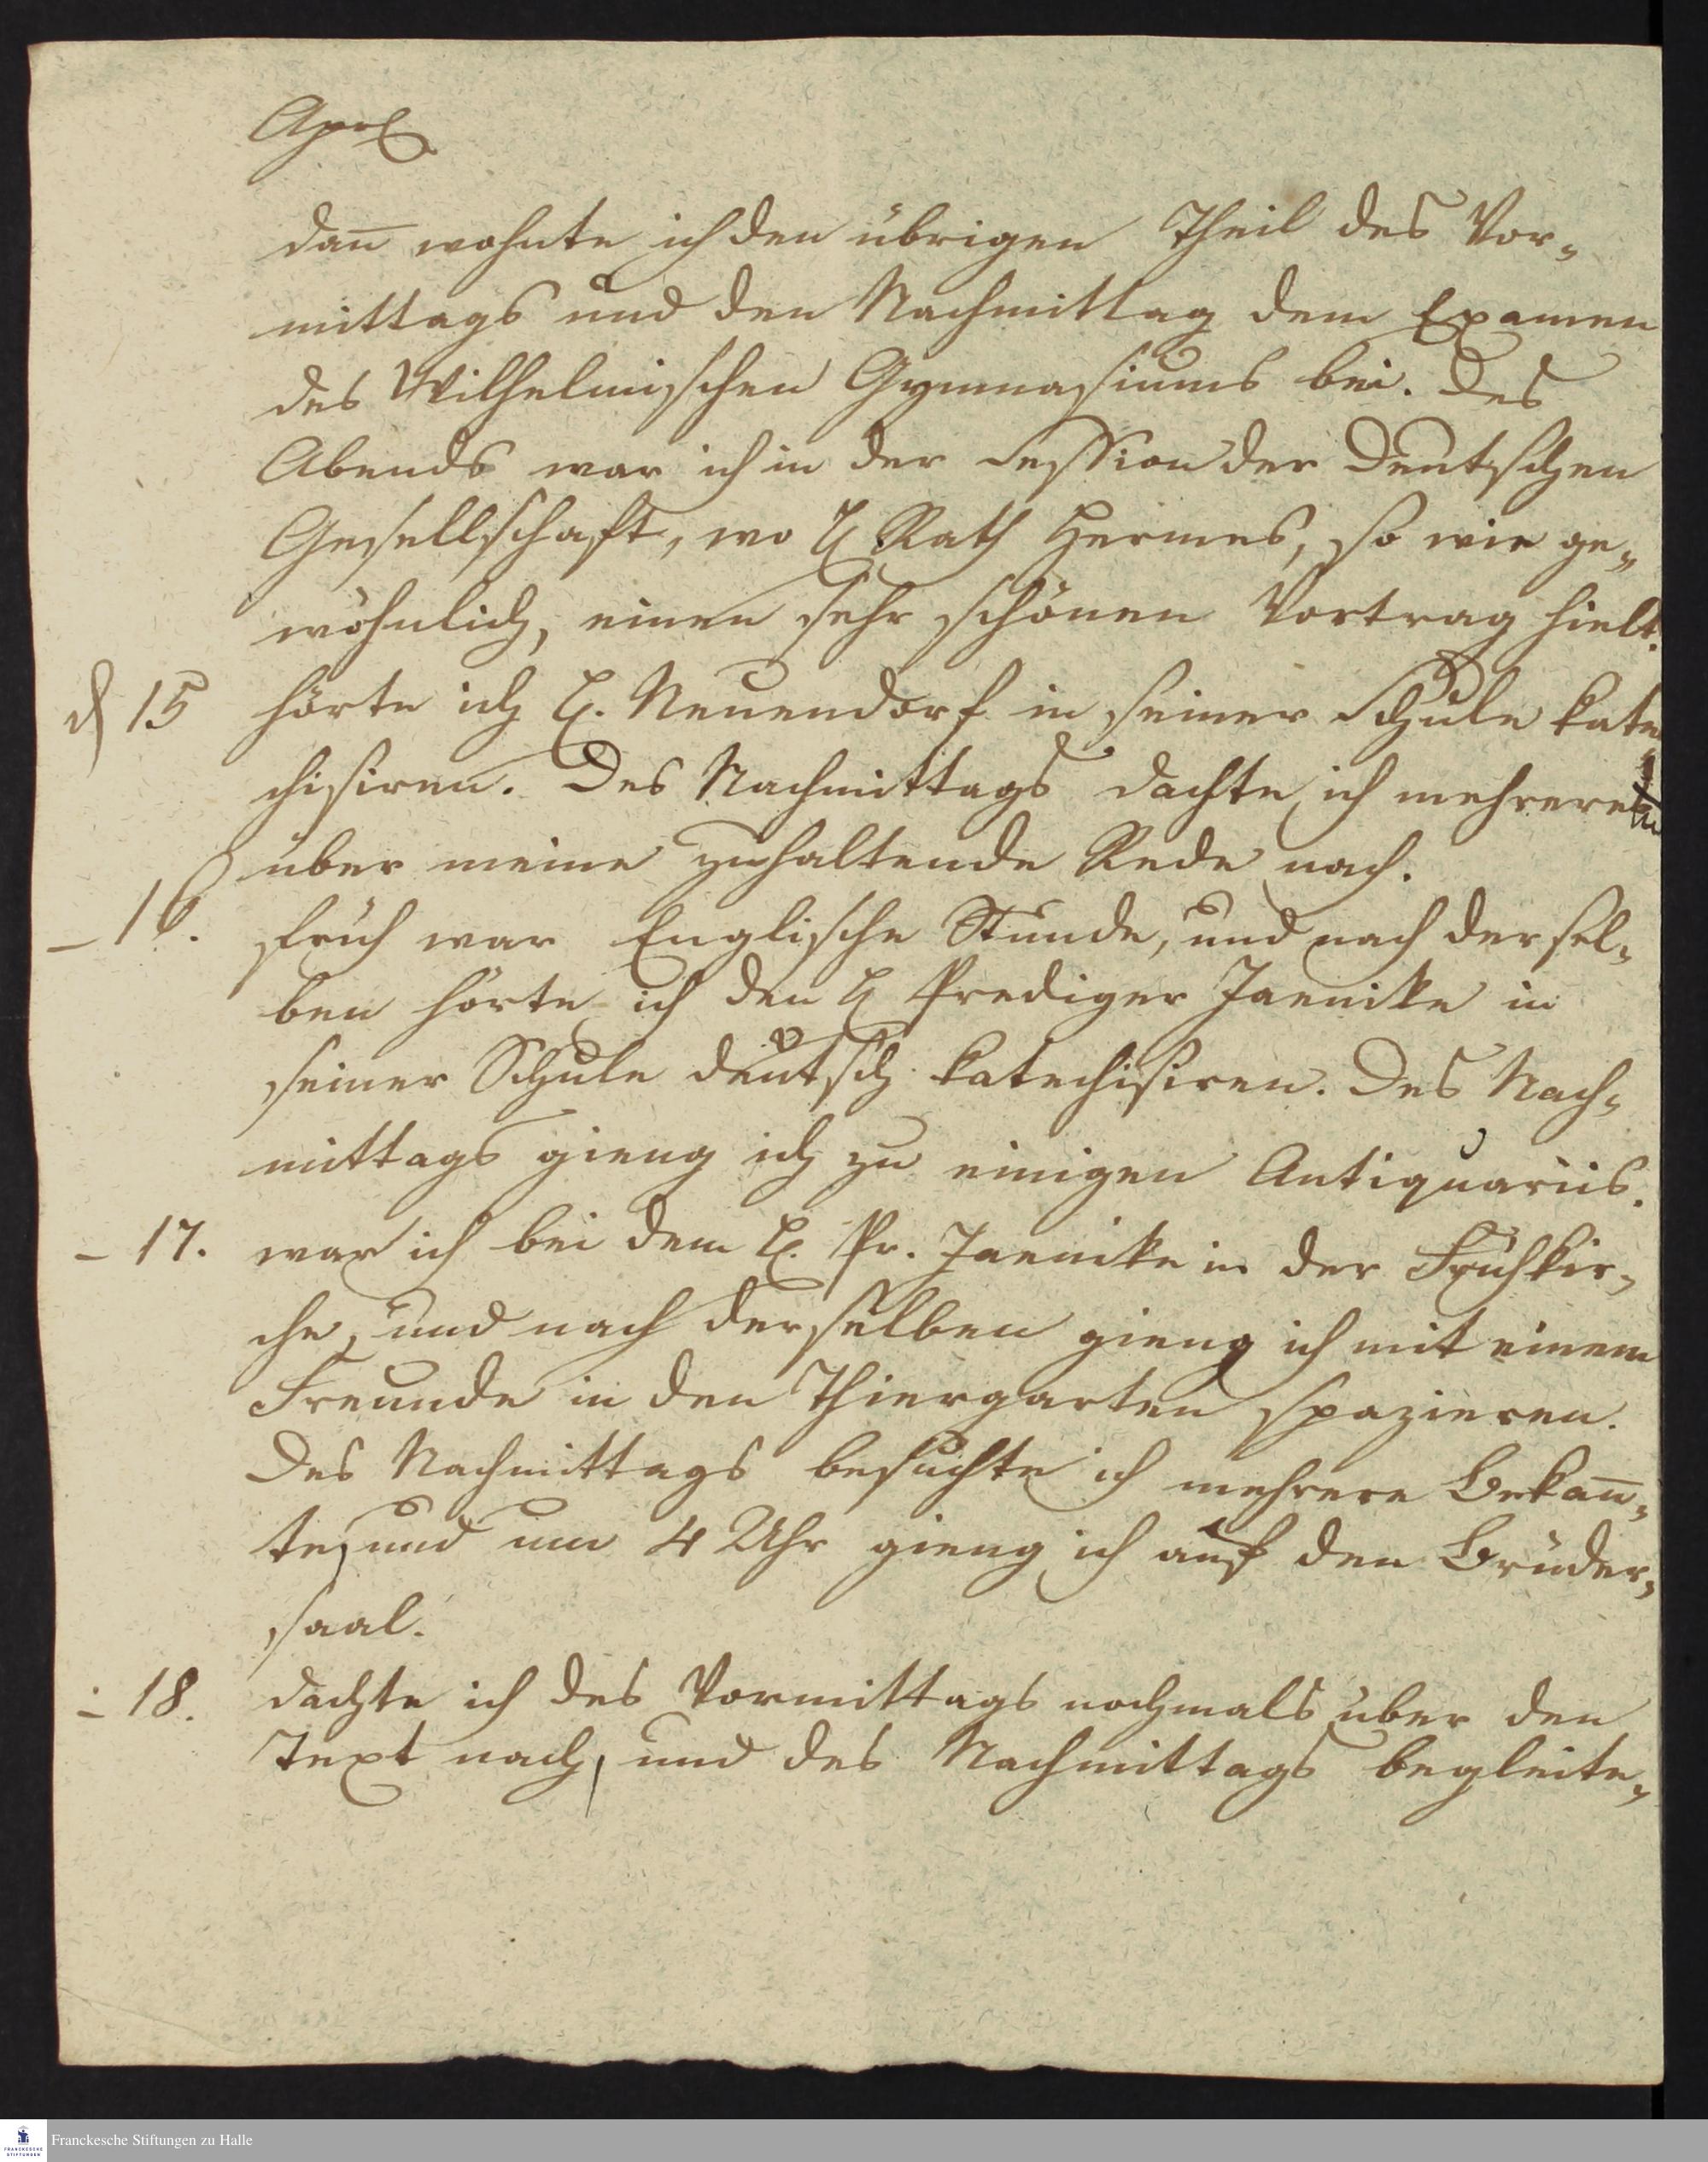 April
dañ wohnte ich den übrigen Theil des Vor-
mittags und den Nachmittag dem Examen
des Wilhelmischen Gymnasiums bei. Des
Abends war ich in der Session der Deutschen
Gesellschaft, wo H Rath Hermes, so wie ge-
wöhnlich, einen sehr schönen Vortrag hielt.
d 15 hörte ich H. Neuendorf in seiner Schule kate
chisiren. Des Nachmittags dachte ich mehrere
über meine zuhaltende Rede nach.
– 16. früh war Englische Stunde, und nach dersel-
ben hörte ich den H Prediger Jaenike in
seiner Schule deutsch katechisiren. Des Nach-
mittags gieng ich zu einigen Antiquariis.
– 17. war ich bei dem H. Pr. Jaenike in der Frühkir-
che, und nach derselben gieng ich mit einem
Freunde in den Thiergarten spazieren.
Des Nachmittags besuchte ich mehrere Bekañ-
te, und um 4 Uhr gieng ich auf den Brüder-
saal.
– 18. dachte ich des Vormittags nochmals über den
Text nach, und des Nachmittags begleite-
Franckesche Stiftungen zu Halle